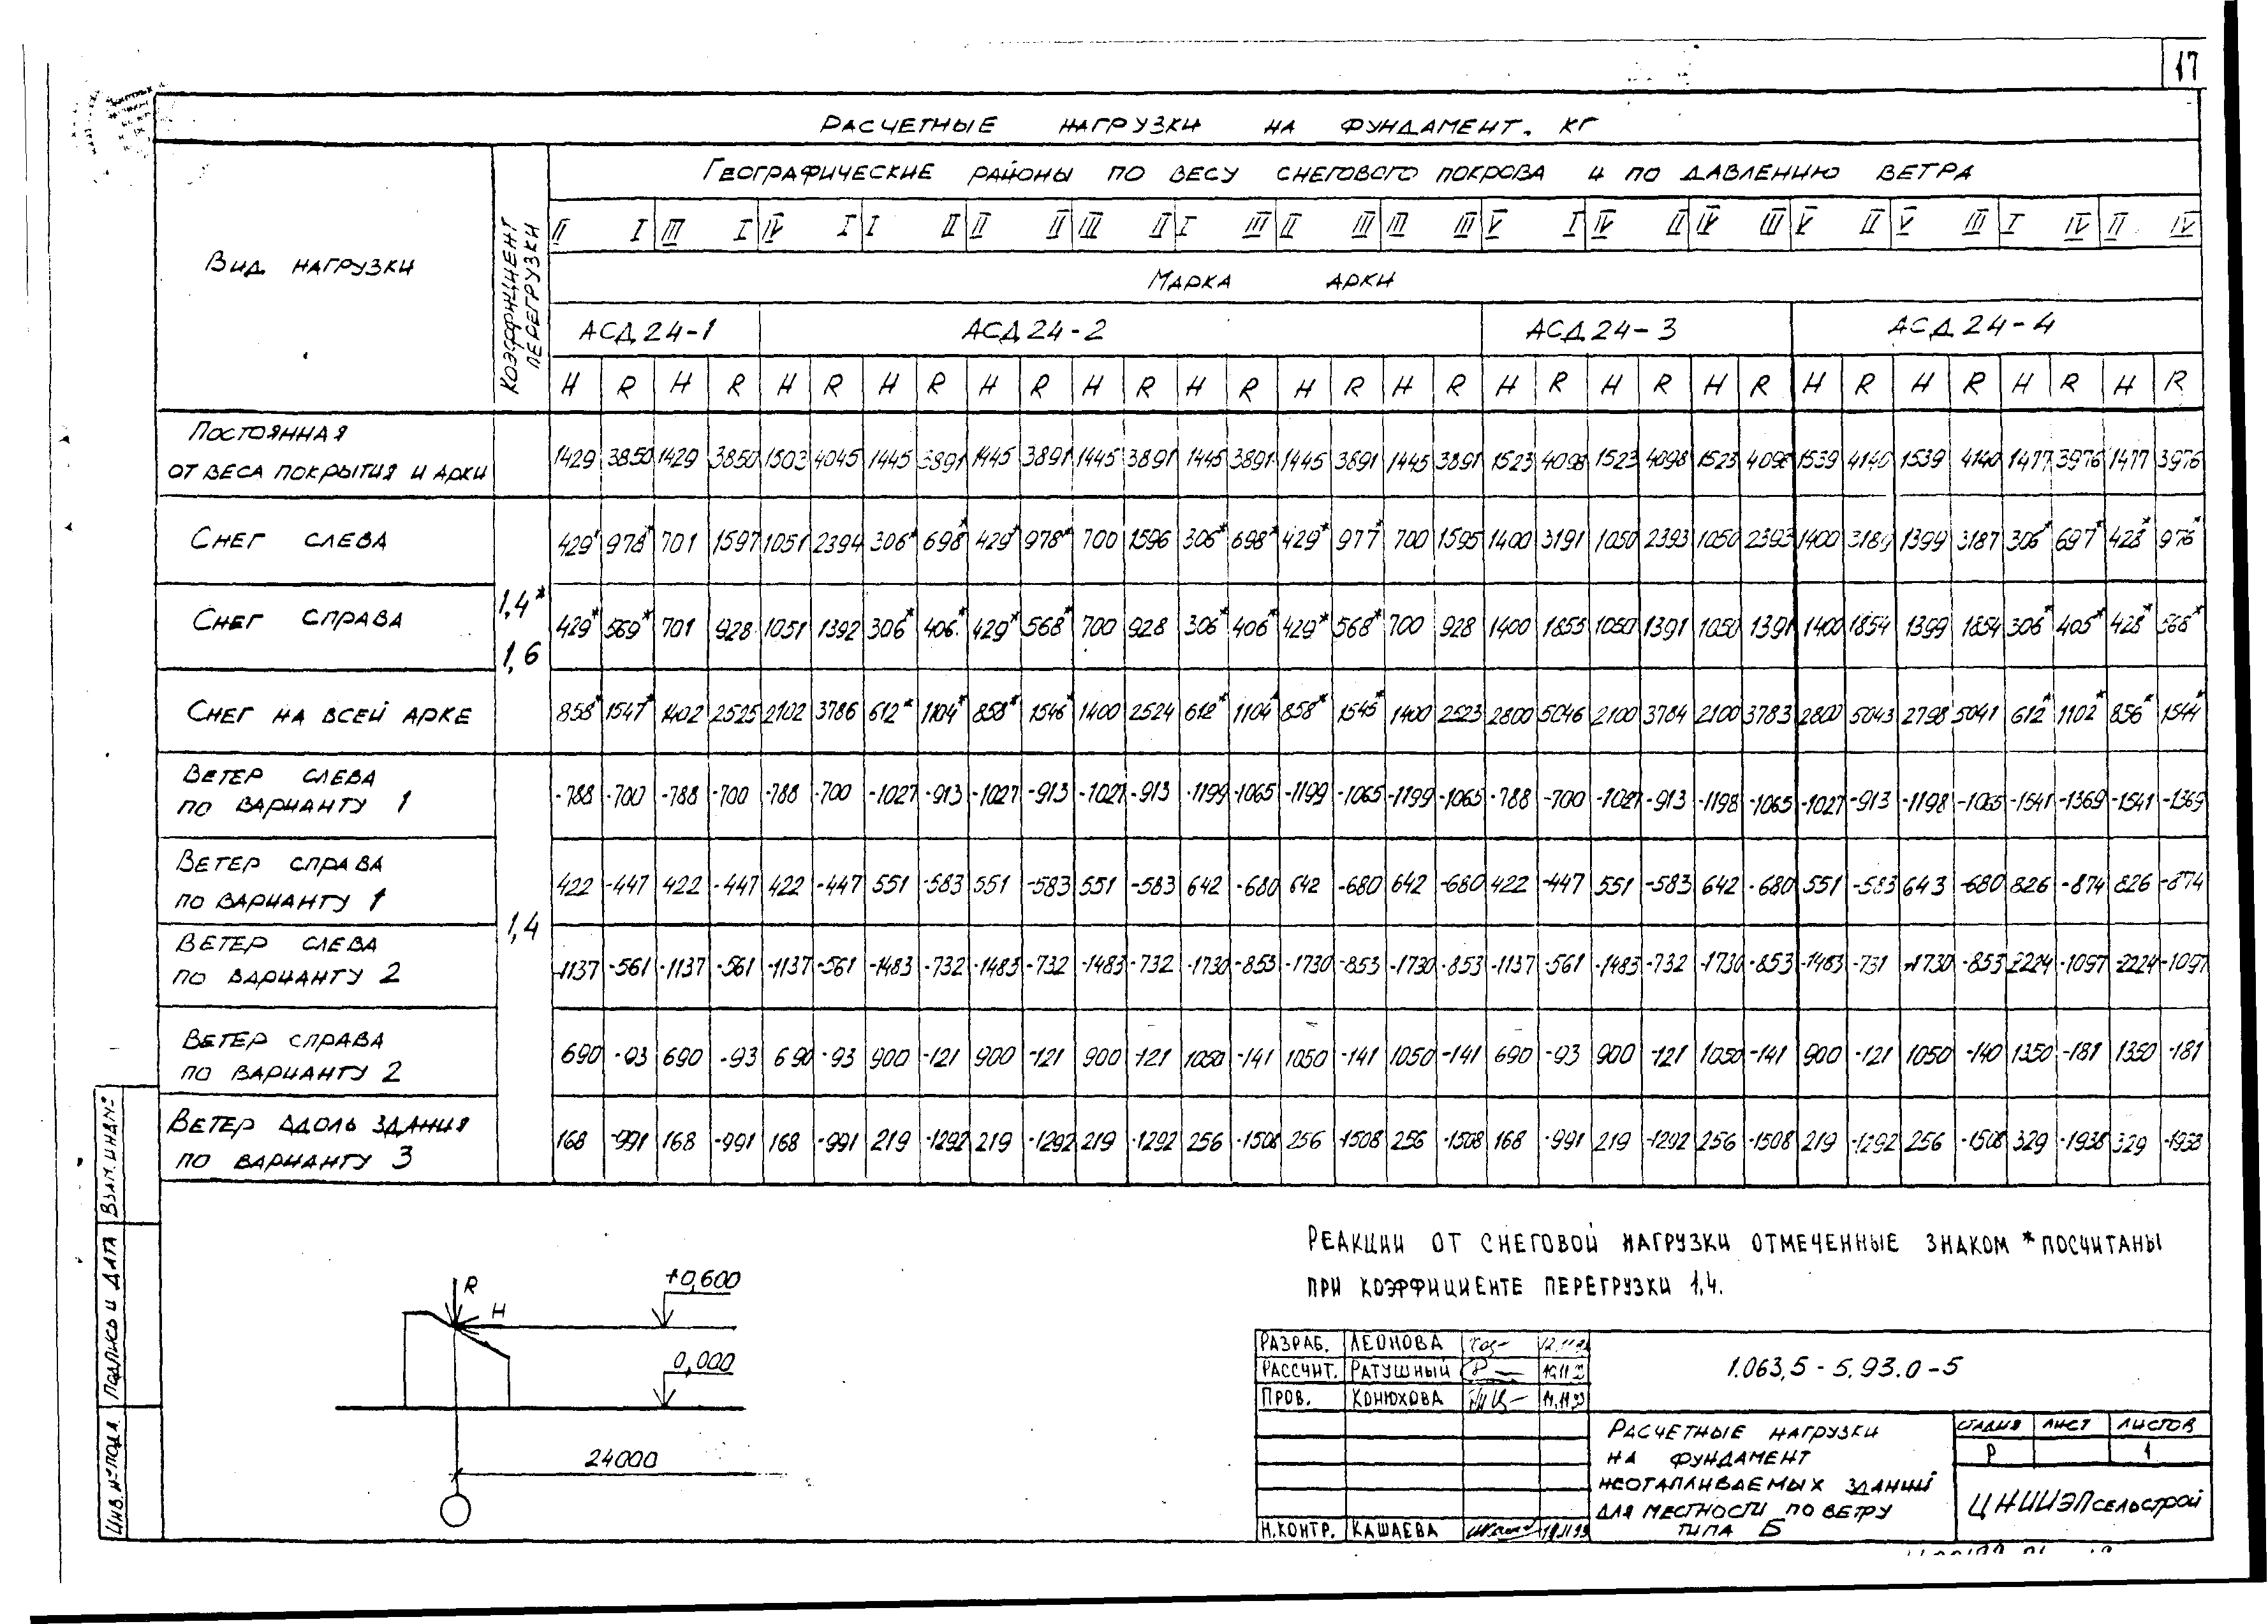 17
РАСЧЕТНЫЕ НАГРУЗКИ НА ФУНДАМЕНТ. КГ
ВИД НАГРУЗКИ
КОЭФФИЦИЕНТ ПЕРЕГРУЗКИ
ГЕОГРАФИЧЕСКИЕ РАЙОНЫ ПО ВЕСУ СНЕГОВОГО ПОКРОВА И ПО ДАВЛЕНИЮ ВЕТРА
II I III I IV I I II II II III II I III II III III III V I IV II IV III V II V III I IV II IV
МАРКА АРКИ
АСД 24-1 АСД 24-2 АСД 24-3 АСД 24-4
H R H R H R H R H R H R H R H R H R H R H R H R H R H R H R H R
ПОСТОЯННАЯ
ОТ ВЕСА ПОКРЫТИЯ И АРКИ
1429 3850 1429 3850 1503 4045 1445 3891 1445 3891 1445 3891 1445 3891 1445 3891 1445 3891 1523 4098 1523 4098 1523 4098 1539 4140 1539 4140 1477 3976 1477 3976
СНЕГ СЛЕВА 429* 978* 701 1597 1051 2394 306* 698* 429* 978* 700 1596 306* 698* 429* 977* 700 1595 1400 3191 1050 2393 1050 2393 1400 3189 1399 3187 306* 697* 428* 976*
1,4*
1,6
СНЕГ СПРАВА 429* 569* 701 928 1051 1392 306* 406* 429* 568* 700 928 306* 406* 429* 568* 700 928 1400 1855 1050 1391 1050 1391 1400 1854 1399 1854 306* 405* 428* 568*
СНЕГ НА ВСЕЙ АРКЕ 858* 1547* 1402 2525 2102 3786 612* 1104* 858* 1546* 1400 2524 612* 1104* 858* 1545* 1400 2523 2800 5046 2100 3784 2100 3783 2800 5043 2798 5041 612* 1102* 856* 1544*
ВЕТЕР СЛЕВА
ПО ВАРИАНТУ 1
-788 -700 -788 -700 -788 -700 -1027 -913 -1027 -913 -1027 -913 -1199 -1065 -1199 -1065 -1199 -1065 -788 -700 -1027 -913 -1198 -1065 -1027 -913 -1198 -1065 -1541 -1369 -1541 -1369
ВЕТЕР СПРАВА
ПО ВАРИАНТУ 1
422 -447 422 -447 422 -447 551 -583 551 -583 551 -583 642 -680 642 -680 642 -680 422 -447 551 -583 642 -680 551 -583 643 -680 826 -874 826 -874
1,4
ВЕТЕР СЛЕВА
ПО ВАРИАНТУ 2
-1137 -561 -1137 -561 -1137 -561 -1483 -732 -1483 -732 -1483 -732 -1730 -853 -1730 -853 -1730 -853 -1137 -561 -1483 -732 -1730 -853 -1483 -731 -1730 -853 -2224 -1097 -2224 -1097
ВЕТЕР СПРАВА
ПО ВАРИАНТУ 2
690 -93 690 -93 690 -93 900 -121 900 -121 900 -121 1050 -141 1050 -141 1050 -141 690 -93 900 -121 1050 -141 900 -121 1050 -140 1350 -181 1350 -181
ВЕТЕР ВДОЛЬ ЗДАНИЯ
ПО ВАРИАНТУ 3
168 -991 168 -991 168 -991 219 -1292 219 -1292 219 -1292 256 -1508 256 -1508 256 -1508 168 -991 219 -1292 256 -1508 219 -1292 256 -1508 329 -1938 329 -1938
РЕАКЦИИ ОТ СНЕГОВОЙ НАГРУЗКИ ОТМЕЧЕННЫЕ ЗНАКОМ * ПОСЧИТАНЫ
ПРИ КОЭФФИЦИЕНТЕ ПЕРЕГРУЗКИ 1,4.
R
H
+0,600
0,000
24000
ВЗАМ. ИНВ.№
ПОДПИСЬ И ДАТА
ИНВ. № ПОДЛ.
РАЗРАБ. ЛЕОНОВА
РАССЧИТ. РАТУШНЫЙ
ПРОВ. КОНЮХОВА 11.11.93
Н.КОНТР. КАШАЕВА
1.063,5-5.93.0-5
РАСЧЕТНЫЕ НАГРУЗКИ
НА ФУНДАМЕНТ
НЕОТАПЛИВАЕМЫХ ЗДАНИЙ
ДЛЯ МЕСТНОСТИ ПО ВЕТРУ
ТИПА Б
СТАДИЯ ЛИСТ ЛИСТОВ
Р 1
ЦНИИЭПсельстрой